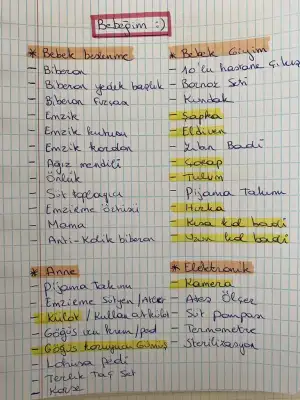 Bebeğim :)
* Bebek beslenme
- Biberon
- Biberon yedek başlık
- Biberon fırçası
- Emzik
- Emzik kutusu
- Emzik kordon
- Ağız mendili
- Önlük
- Süt toplayıcı
- Emzirme örtüsü
- Mama
- Anti-kolik biberon
* Bebek Giyim
- 10'lu hastane çıkış
- Bornoz Seti
- Kundak
- Şapka
- Eldiven
- Zıbın Badi
- Çorap
- Tulum
- Pijama Takımı
- Hırka
- Kısa kol badi
- Uzun kol badi
* Anne
- Pijama Takımı
- Emzirme Sütyen / Atlet
- Külot / Kullan at külot
- Göğüs ucu krem/ped
- Göğüs koruyucu Gümüş
- Lohusa pedi
- Terlik Taç Set
- Korse
* Elektronik
- Kamera
- Ateş Ölçer
- Süt pompası
- Termometre
- Sterilizasyon